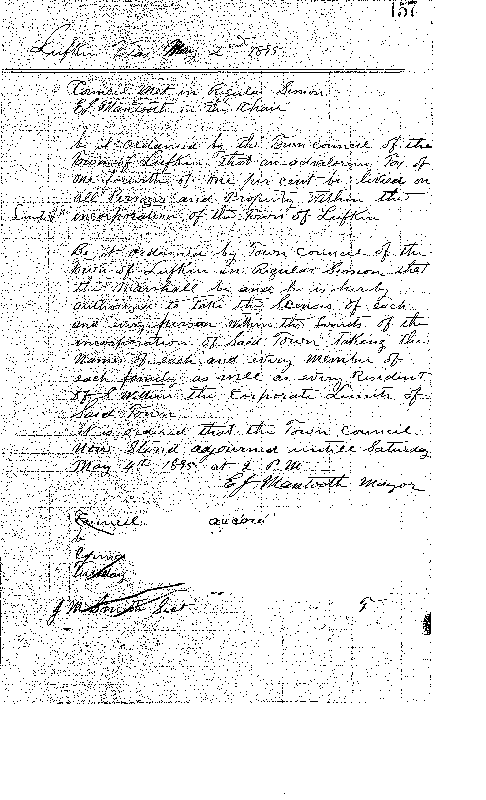 157
Lufkin Tex May 2nd 1895
Council met in Regular Session
E.J. Mantooth in the Chair
be it ordained by the Town council of the
town of Lufkin that an advalorem Tax of
one fourth of one per cent be levied on
all Persons and Property within the
incorporation of the Town of Lufkin
Be it ordained by Town Council of the
town of Lufkin in Regular Session that
the Marshall be and he is hereby
authorised to take the Census of each
and every person within the limits of the
incorporation of Said Town taking the
Names of each and every Member of
each family as well as every Resident
within the Corporate Limits of
Said Town
it is ordered that the Town Council
Now Stand adjourned untill Saturday
May 4th 1895 at P.M.
E.J. Mantooth Mayor
Council
J M Smith Sect